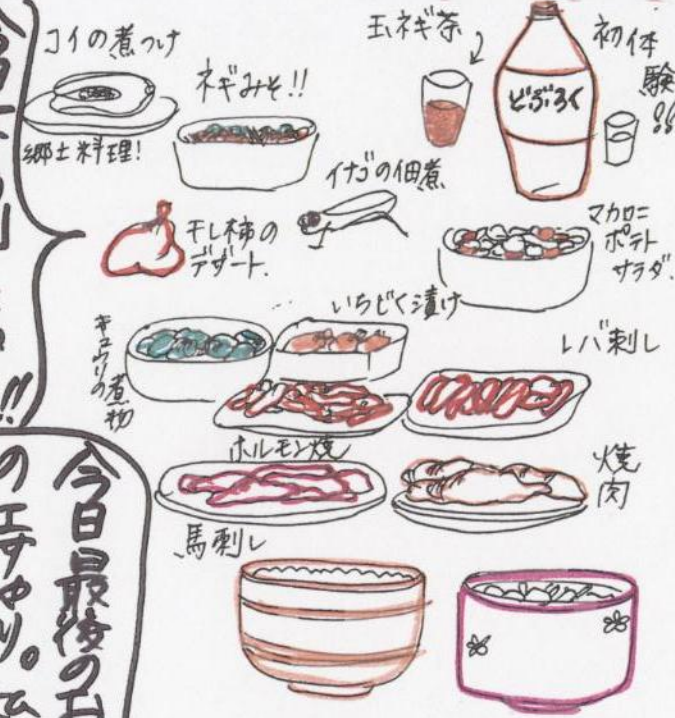 コイの煮つけ
郷土料理!
ネギみそ!!
玉ネギ茶
どぶろく
初体
験
!!
イナゴの佃煮
干し柿の
デザート.
マカロニ
ポテト
サラダ.
いちじく漬け
キュウリの煮物
レバ刺し
ホルモン焼
焼
肉
馬刺し
!!
今日最後の
のエサやり。